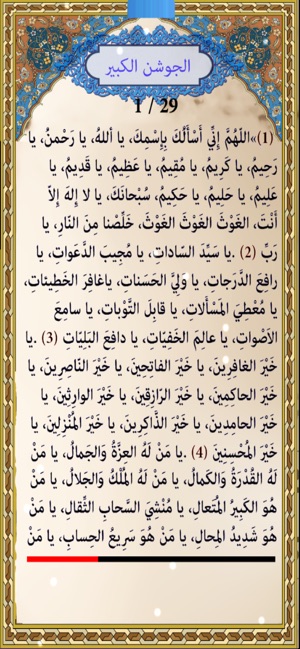 الجوشن الكبير
1 / 29
(1)»اللّهُمَّ إِنِّي أَسْأَلُكَ بِإِسْمِكَ، يا أَللهُ، يا رَحْمنُ، يا
رَحِيمُ، يا كَرِيمُ، يا مُقِيمُ، يا عَظِيمُ، يا قَدِيمُ، يا
عَلِيمُ، يا حَلِيمُ، يا حَكِيمُ، سُبْحانَكَ، يا لا إلهَ إِلاّ
أَنْتَ، الغَوْثَ الغَوْثَ الغَوْثَ، خَلِّصْنا مِنَ النّارِ، يا
رَبِّ (2) .يا سَيِّدَ السّاداتِ، يا مُجِيبَ الدَّعَواتِ، يا
رافِعَ الدَّرَجاتِ، يا وَلِيَّ الحَسَناتِ، ياغافِرَ الخَطِيئاتِ،
يا مُعْطِيَ المَسْأَلاتِ، يا قابِلَ التَّوْباتِ، يا سامِعَ
الاَصْواتِ، يا عالِمَ الخَفِيّاتِ، يا دافِعَ البَلِيّاتِ (3) .يا
خَيْرَ الغافِرِينَ، يا خَيْرَ الفاتِحِينَ، يا خَيْرَ النّاصِرِينَ، يا
خَيْرَ الحاكِمِينَ، يا خَيْرَ الرّازِقِينَ، يا خَيْرَ الوارِثِينَ، يا
خَيْرَ الحامِدِينَ، يا خَيْرَ الذّاكِرِينَ، يا خَيْرَ المُنْزِلِينَ، يا
خَيْرَ المُحْسِنِينَ (4) .يا مَنْ لَهُ العِزَّةُ وَالجَمالُ، يا مَنْ
لَهُ القُدْرَةُ وَالكَمالُ، يا مَنْ لَهُ المُلْكُ وَالجَلالُ، يا مَنْ
هُوَ الكَبِيرُ المُتَعالِ، يا مُنْشِيَ السَّحابِ الثِّقالِ، يا مَنْ
هُوَ شَدِيدُ المِحالِ، يا مَنْ هُوَ سَرِيعُ الحِسابِ، يا مَنْ